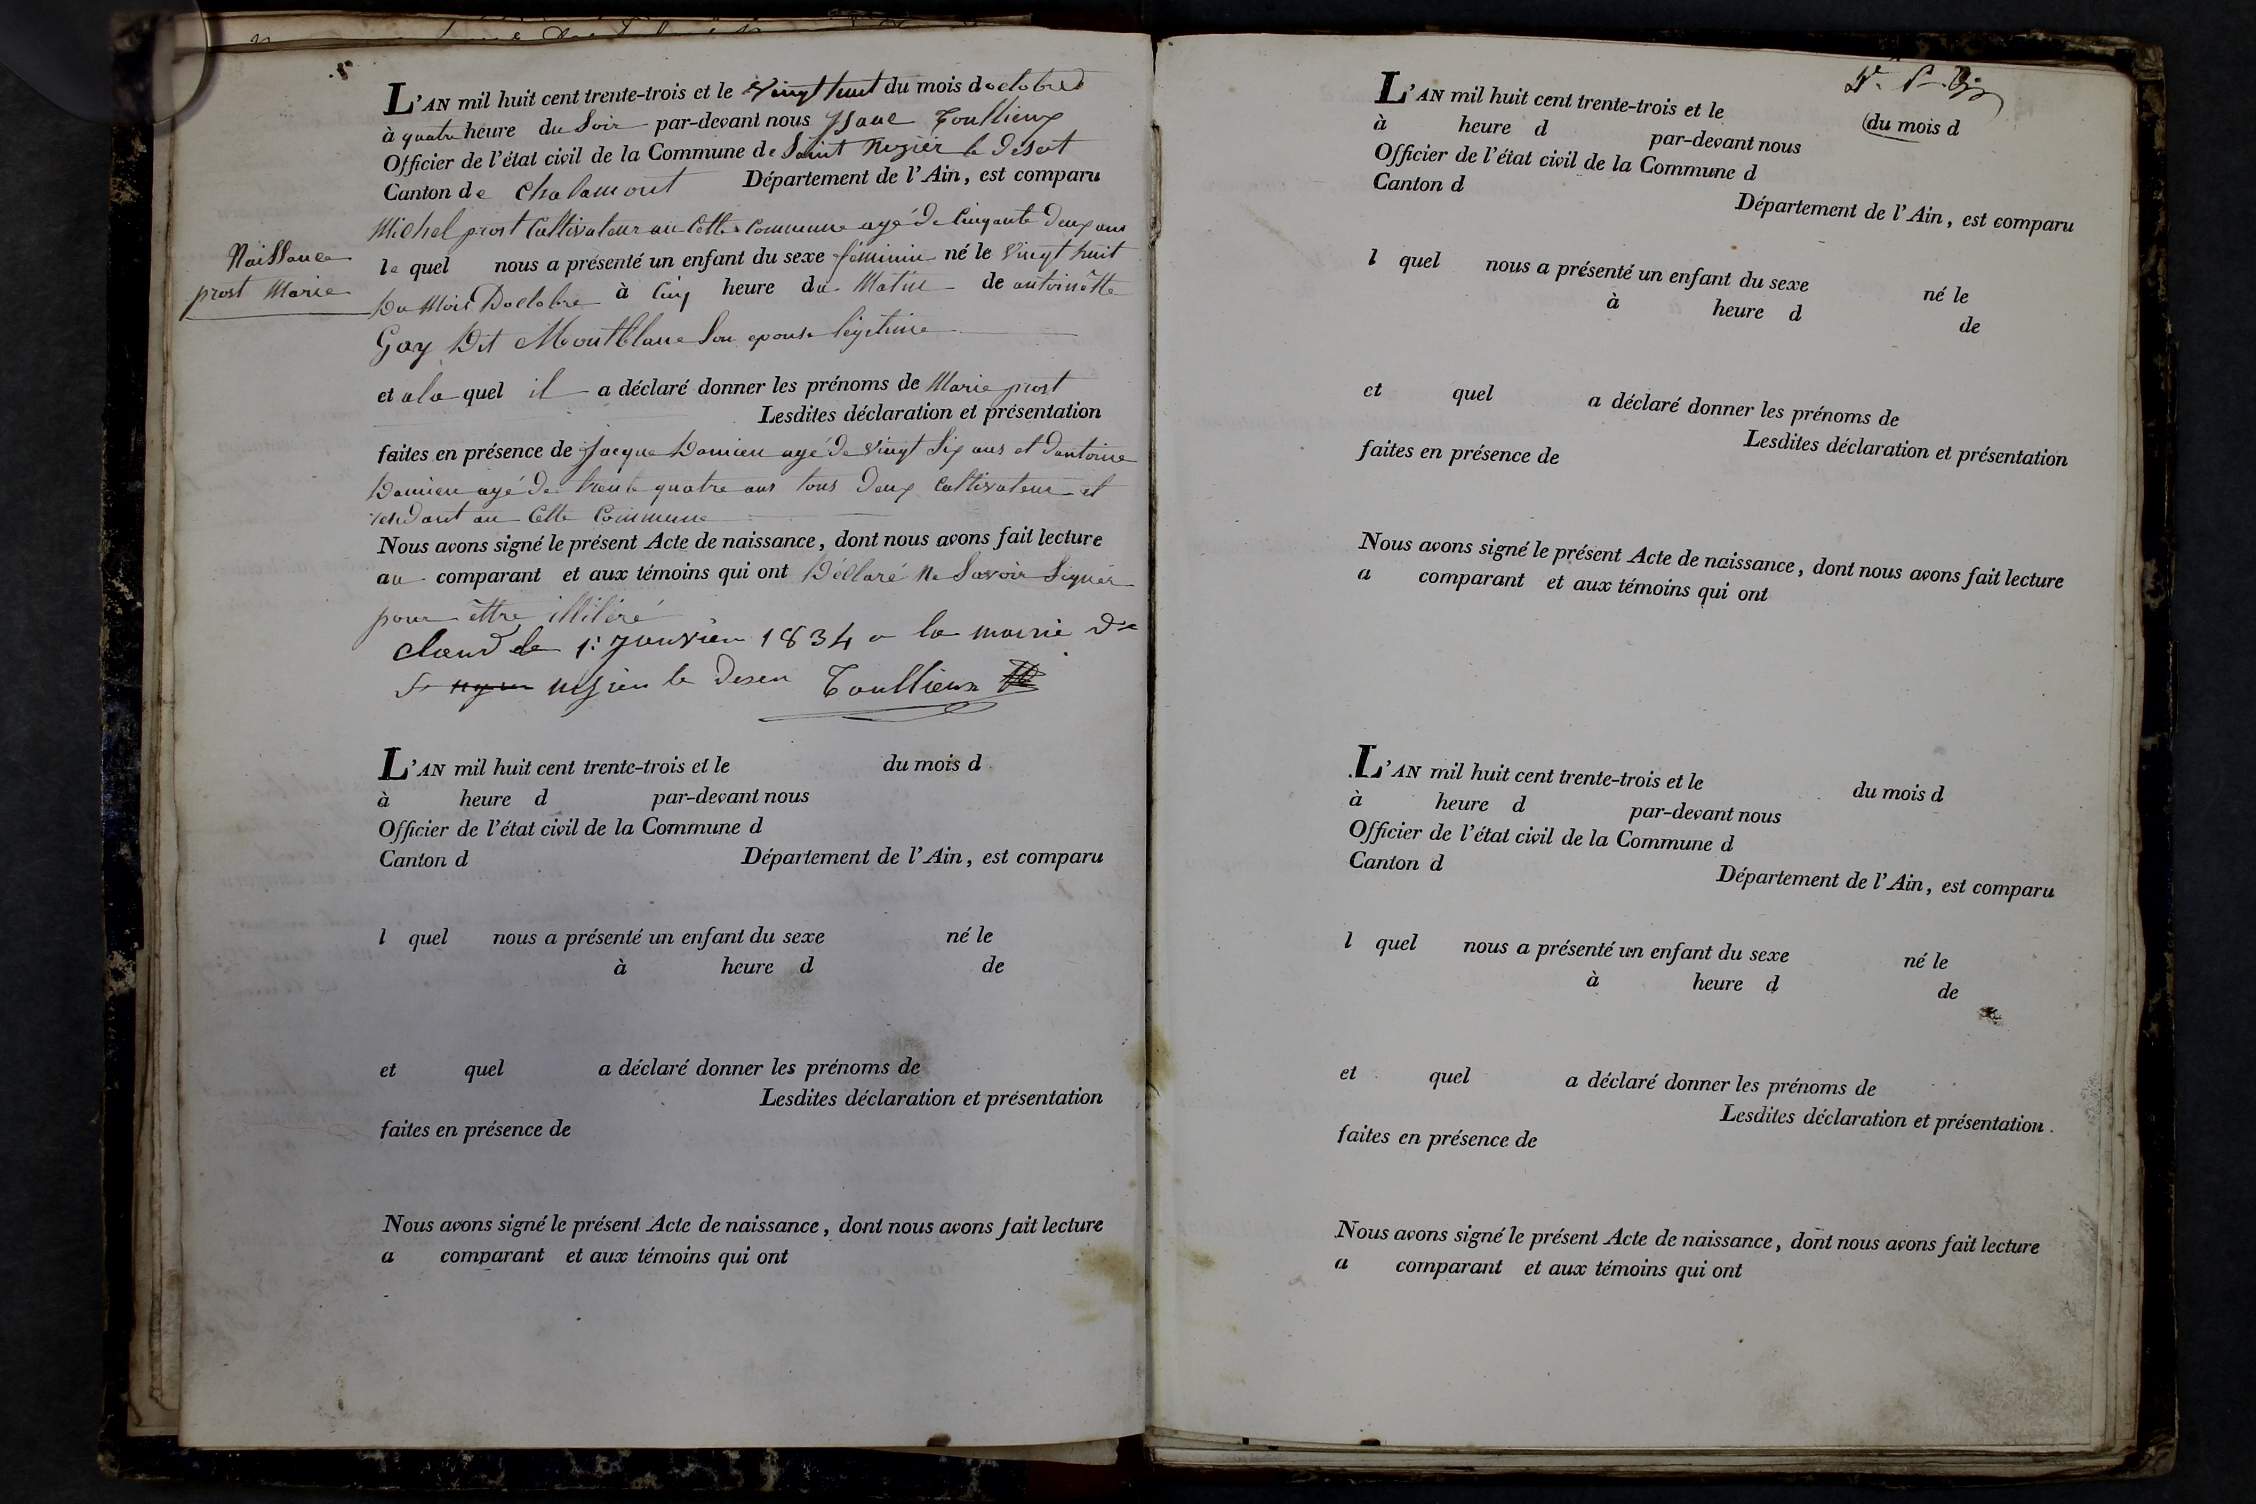 L'AN mil huit cent trente-trois et le vingt huit du mois doctobre
à quatre heure du Soir par-devant nous Ysaac Toullieux
Officier de l'état civil de la Commune de Saint Nizier le Desert
Canton de Chalamont Département de l'Ain, est comparu
Michel prost Cultivateur au Cette Commune agé de Cinquante deux ans
le quel nous a présenté un enfant du sexe féminin né le vingt huit
Du Mois Doctobre à Cinq heure du Matin de antoinette
Gay Dit Montblanc Son epouse légitime
Naissance
prost Marie
et ala quel il a déclaré donner les prénoms de Marie prost
Lesdites déclaration et présentation
faites en présence de Jacque Damien agé de vingt Six ans et dantoine
Damien agé de trente quatre ans tous deux Cultivateur et
residant au Cette Commune
Nous avons signé le présent Acte de naissance, dont nous avons fait lecture
au comparant et aux témoins qui ont Déclaré Ne Savoir Signer
pour ettre illitéré
le 1: janvier 1834 a la mairie de
St nisier le Deser Toullieux
L'AN mil huit cent trente-trois et le du mois d
à heure d par-devant nous
Officier de l'état civil de la Commune d
Canton d Département de l'Ain, est comparu
l quel nous a présenté un enfant du sexe né le
à heure d de
et quel a déclaré donner les prénoms de
Lesdites déclaration et présentation
faites en présence de
Nous avons signé le présent Acte de naissance, dont nous avons fait lecture
a comparant et aux témoins qui ont
L'AN mil huit cent trente-trois et le du mois d
à heure d par-devant nous
Officier de l'état civil de la Commune d
Canton d Département de l'Ain, est comparu
l quel nous a présenté un enfant du sexe né le
à heure d de
et quel a déclaré donner les prénoms de
Lesdites déclaration et présentation
faites en présence de
Nous avons signé le présent Acte de naissance, dont nous avons fait lecture
a comparant et aux témoins qui ont
L'AN mil huit cent trente-trois et le du mois d
à heure d par-devant nous
Officier de l'état civil de la Commune d
Canton d Département de l'Ain, est comparu
l quel nous a présenté un enfant du sexe né le
à heure d de
et quel a déclaré donner les prénoms de
Lesdites déclaration et présentation
faites en présence de
Nous avons signé le présent Acte de naissance, dont nous avons fait lecture
a comparant et aux témoins qui ont